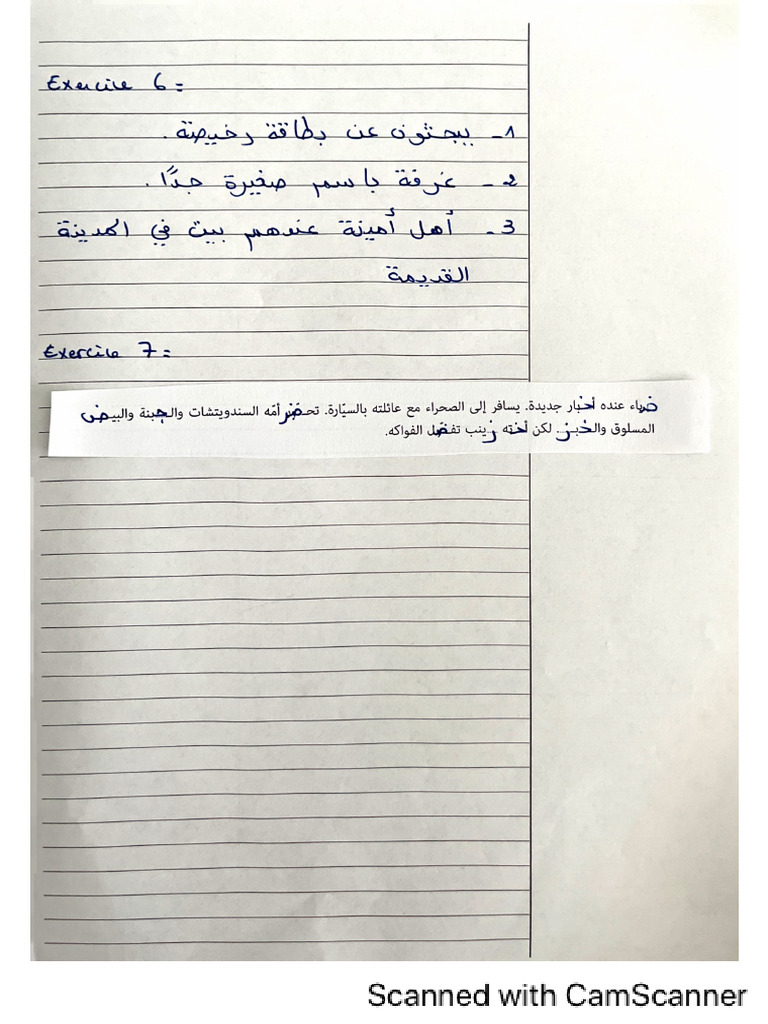 Exercice 6 =
1- يبحثون عن بطاقة رخيصة.
2- غرفة باسم صغيرة جدًّا.
3- أهل أمينة عندهم بيت في المدينة
القديمة
Exercice 7 =
ضياء عنده أخبار جديدة. يسافر إلى الصحراء مع عائلته بالسيّارة. تحضر أمّه السندويتشات والجبنة والبيض
المسلوق والخبز. لكن أخته زينب تفضل الفواكه.
Scanned with CamScanner